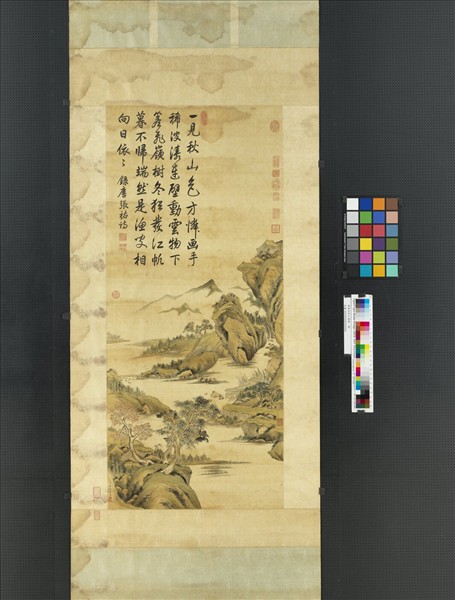 一見秋山色方憐画手
稀波濤連壁動雲物下
簷飛嶺樹冬猶發江帆
暮不歸端然是漁叟相
向日依〻 錄唐張祜詩